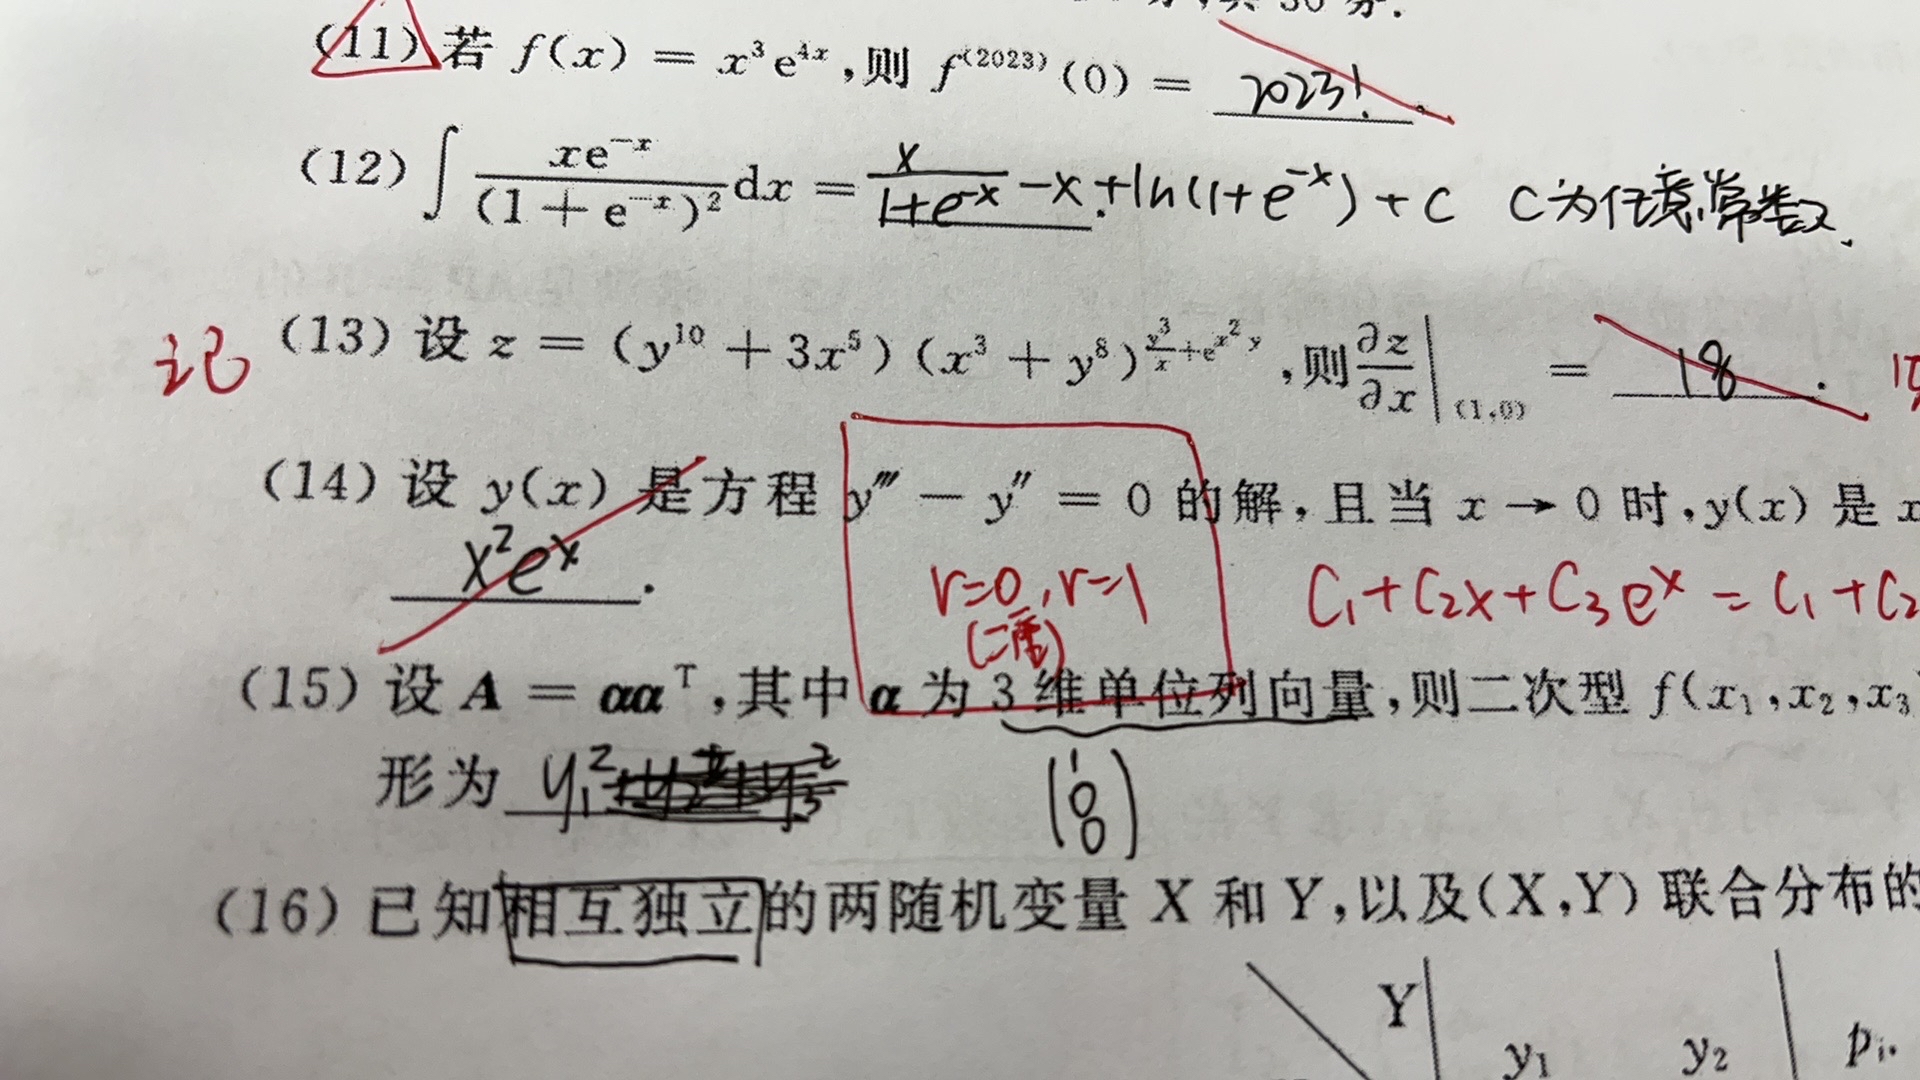 分,共 30 分.
(11) 若 f(x) = x³e⁴ˣ,则 f⁽²⁰²³⁾(0) = 2023! .
(12) ∫ xe⁻ˣ/(1 + e⁻ˣ)² dx = x/(1+e⁻ˣ) -x +ln(1+e⁻ˣ) + C C为任意常数.
记 (13) 设 z = (y¹⁰ + 3x⁵)(x³ + y⁸)^(y³/x + e^(x²y)),则 ∂z/∂x |(1,0) = 18 .
(14) 设 y(x) 是方程 y''' − y'' = 0 的解,且当 x → 0 时,y(x) 是 x
x²eˣ .
r=0, r=1
(二重)
C₁+C₂x+C₃eˣ = C₁+C₂
(15) 设 A = ααᵀ,其中 α 为 3 维单位列向量,则二次型 f(x₁,x₂,x₃
形为 y₁²
(1 0 0)
(16) 已知相互独立的两随机变量 X 和 Y,以及(X,Y) 联合分布的
Y
y₁ y₂ pᵢ.